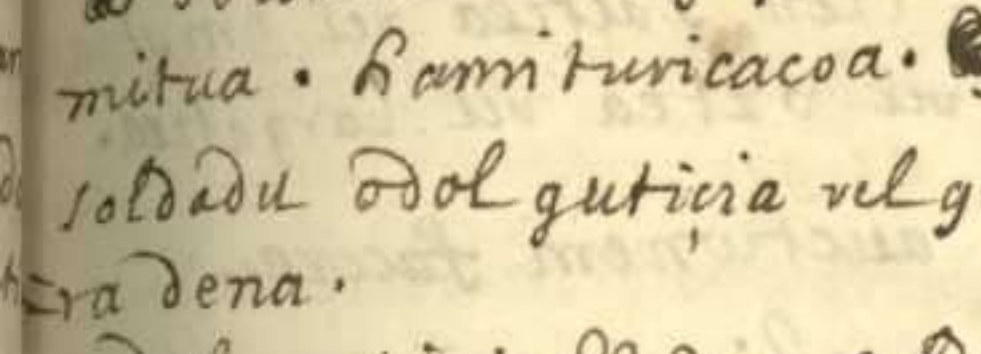 mitua . hamituricacoa .
soldadu odol gutiçia vel g
ra dena .